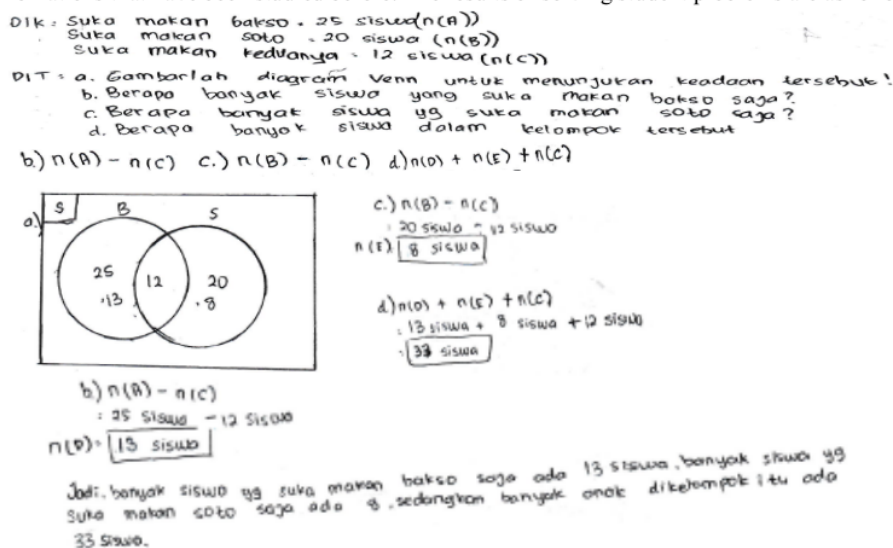 DIK : Suka makan bakso = 25 siswa (n(A))
Suka makan soto = 20 siswa (n(B))
Suka makan keduanya = 12 siswa (n(C))
DIT : a. Gambarlah diagram Venn untuk menunjukan keadaan tersebut!
b. Berapa banyak siswa yang suka makan bakso saja?
c. Berapa banyak siswa yg suka makan soto saja?
d. Berapa banyak siswa dalam kelompok tersebut
b.) n(A) - n(C) c.) n(B) - n(C) d) n(D) + n(E) + n(C)
a.) S B S
25 12 20
·13 ·8
c.) n(B) - n(C)
: 20 siswa - 12 siswa
n(E) 8 siswa
d) n(D) + n(E) + n(C)
: 13 siswa + 8 siswa + 12 siswa
: 33 siswa
b) n(A) - n(C)
: 25 siswa - 12 siswa
n(D) = 13 siswa
Jadi, banyak siswa yg suka makan bakso saja ada 13 siswa, banyak siswa yg
suka makan soto saja ada 8, sedangkan banyak anak dikelompok itu ada
33 siswa.